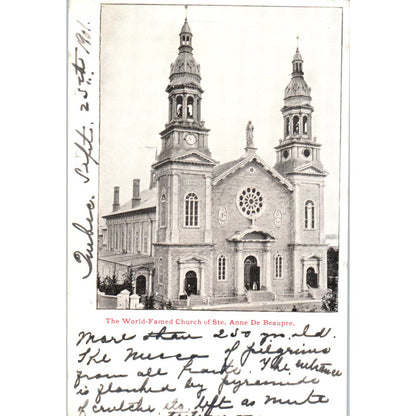 Quebec. Sept. 25th 1901.
The World-Famed Church of Ste. Anne De Beaupre.
More than 250 yrs. old.
The Mecca of pilgrims
from all parts. The entrance
is flanked by pyramids
of crutches, etc. left as mute